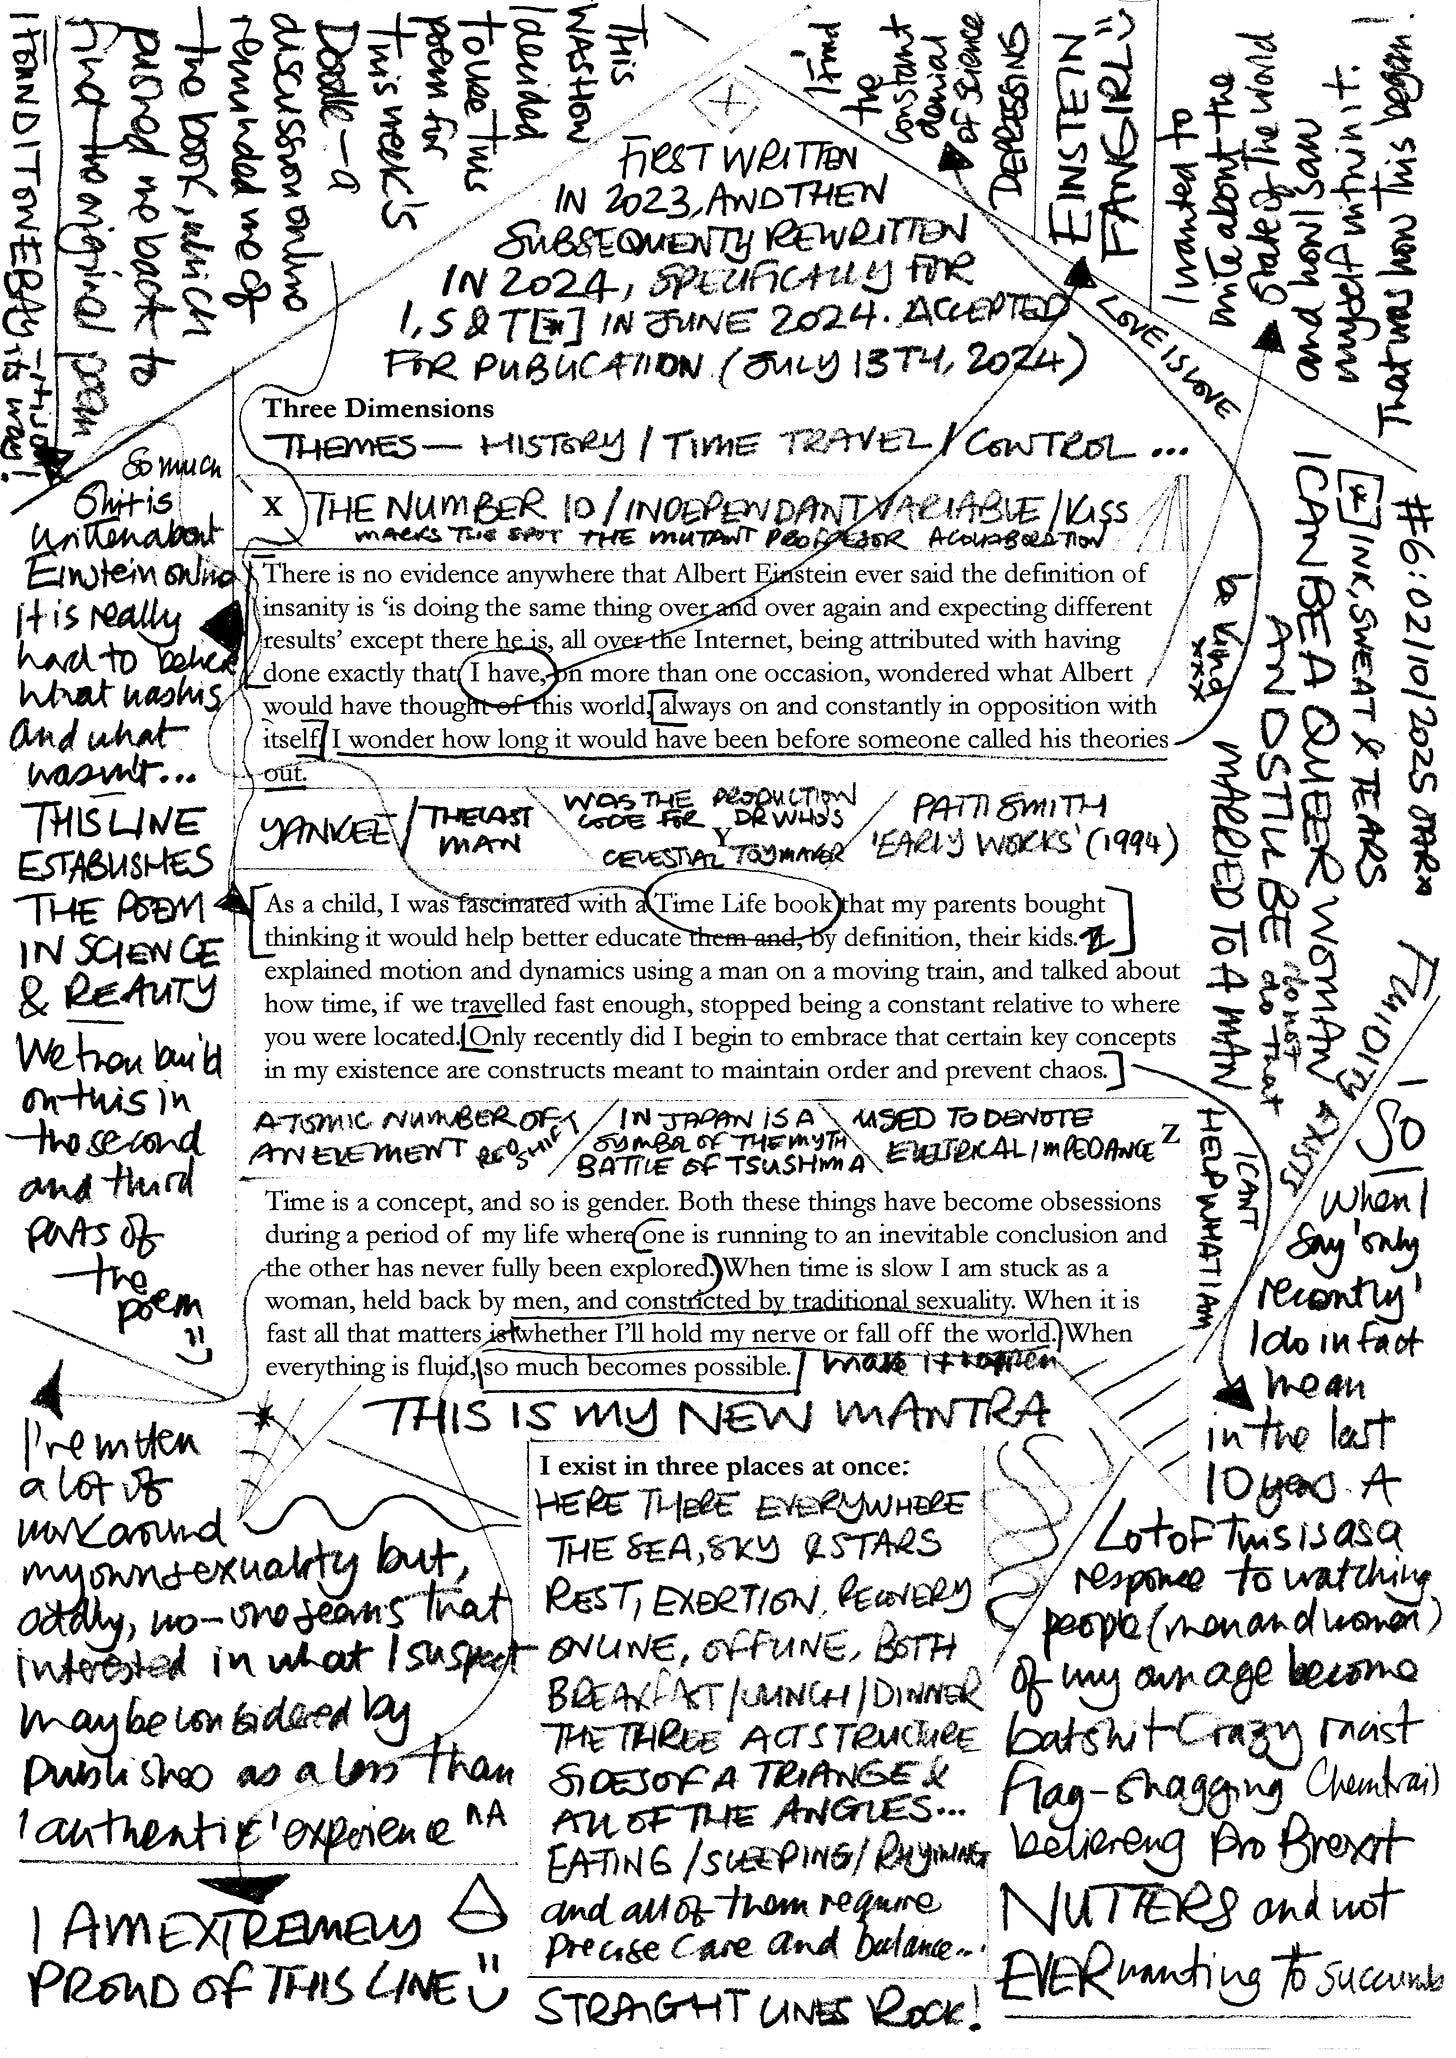 THIS
WAS HOW
I decided
TO USE THIS
poem for
THIS week's
Doodle - a
discussion online
reminded me of
the book, which
pushed me back to
find the original poem
I FOUND IT ON EBAY
I find
the
constant
denial
of science
DEPRESSING
EINSTEIN
FANGIRL
I wanted to
write about the
state of the world
and how I saw
myself within it.
That was how this began!
FIRST WRITTEN
IN 2023, AND THEN
SUBSEQUENTY REWRITTEN
IN 2024, SPECIFICALLY FOR
I, S & T [*] IN JUNE 2024. ACCEPTED
FOR PUBLICATION (JULY 13TH, 2024)
LOVE IS LOVE
be kind
xxx
Three Dimensions
THEMES — HISTORY / TIME TRAVEL / CONTROL ...
X THE NUMBER 10 / INDEPENDANT VARIABLE / KISS
MARKS THE SPOT THE MUTANT PROFESSOR A COLLABORATION
There is no evidence anywhere that Albert Einstein ever said the definition of
insanity is ‘is doing the same thing over and over again and expecting different
results’ except there he is, all over the Internet, being attributed with having
done exactly that. I have, on more than one occasion, wondered what Albert
would have thought of this world, always on and constantly in opposition with
itself. I wonder how long it would have been before someone called his theories
out.
YANKEE / THE LAST MAN
WAS THE PRODUCTION
CODE FOR DR WHO'S
Y
CELESTIAL TOYMAKER
PATTI SMITH
'EARLY WORKS' (1994)
As a child, I was fascinated with a Time Life book that my parents bought
thinking it would help better educate them and, by definition, their kids. It
explained motion and dynamics using a man on a moving train, and talked about
how time, if we travelled fast enough, stopped being a constant relative to where
you were located. Only recently did I begin to embrace that certain key concepts
in my existence are constructs meant to maintain order and prevent chaos.
ATOMIC NUMBER OF
AN ELEMENT REDSHIFT
IN JAPAN IS A
SYMBOL OF THE MYTH
BATTLE OF TSUSHIMA
USED TO DENOTE
ELECTRICAL IMPEDANCE Z
Time is a concept, and so is gender. Both these things have become obsessions
during a period of my life where one is running to an inevitable conclusion and
the other has never fully been explored. When time is slow I am stuck as a
woman, held back by men, and constricted by traditional sexuality. When it is
fast all that matters is whether I’ll hold my nerve or fall off the world. When
everything is fluid, so much becomes possible. make it happen
THIS IS MY NEW MANTRA
I exist in three places at once:
HERE THERE EVERYWHERE
THE SEA, SKY & STARS
REST, EXERTION, RECOVERY
ONLINE, OFFLINE, BOTH
BREAKFAST / LUNCH / DINNER
THE THREE ACT STRUCTURE
SIDES OF A TRIANGE &
ALL OF THE ANGLES...
EATING / SLEEPING / RHYMING
and all of them require
precise care and balance...
STRAIGHT LINES ROCK!
So much
shit is
written about
Einstein online
it is really
hard to believe
what was his
and what
wasn't...
THIS LINE
ESTABLISHES
THE POEM
IN SCIENCE
& REALITY
We then build
on this in
the second
and third
parts of
the
poem
I've written
a lot of
work around
my own sexuality but,
oddly, no-one seems that
interested in what I suspect
may be considered by
publishers as a less than
'authentic' experience
I AM EXTREMELY
PROUD OF THIS LINE
#6: 02/10/2025
[*] INK, SWEAT & TEARS
I CAN BE A QUEER WOMAN
AND STILL BE
MARRIED TO A MAN
do not
do that
I CAN'T
HELP WHAT I AM
FLUIDITY EXISTS
SO
When I
say 'only
recently'
I do in fact
mean
in the last
10 years. A
Lot of this is as a
response to watching
people (men and women)
of my own age become
batshit crazy racist
flag-shagging chemtrail
believeng pro Brexit
NUTTERS and not
EVER wanting to succumb